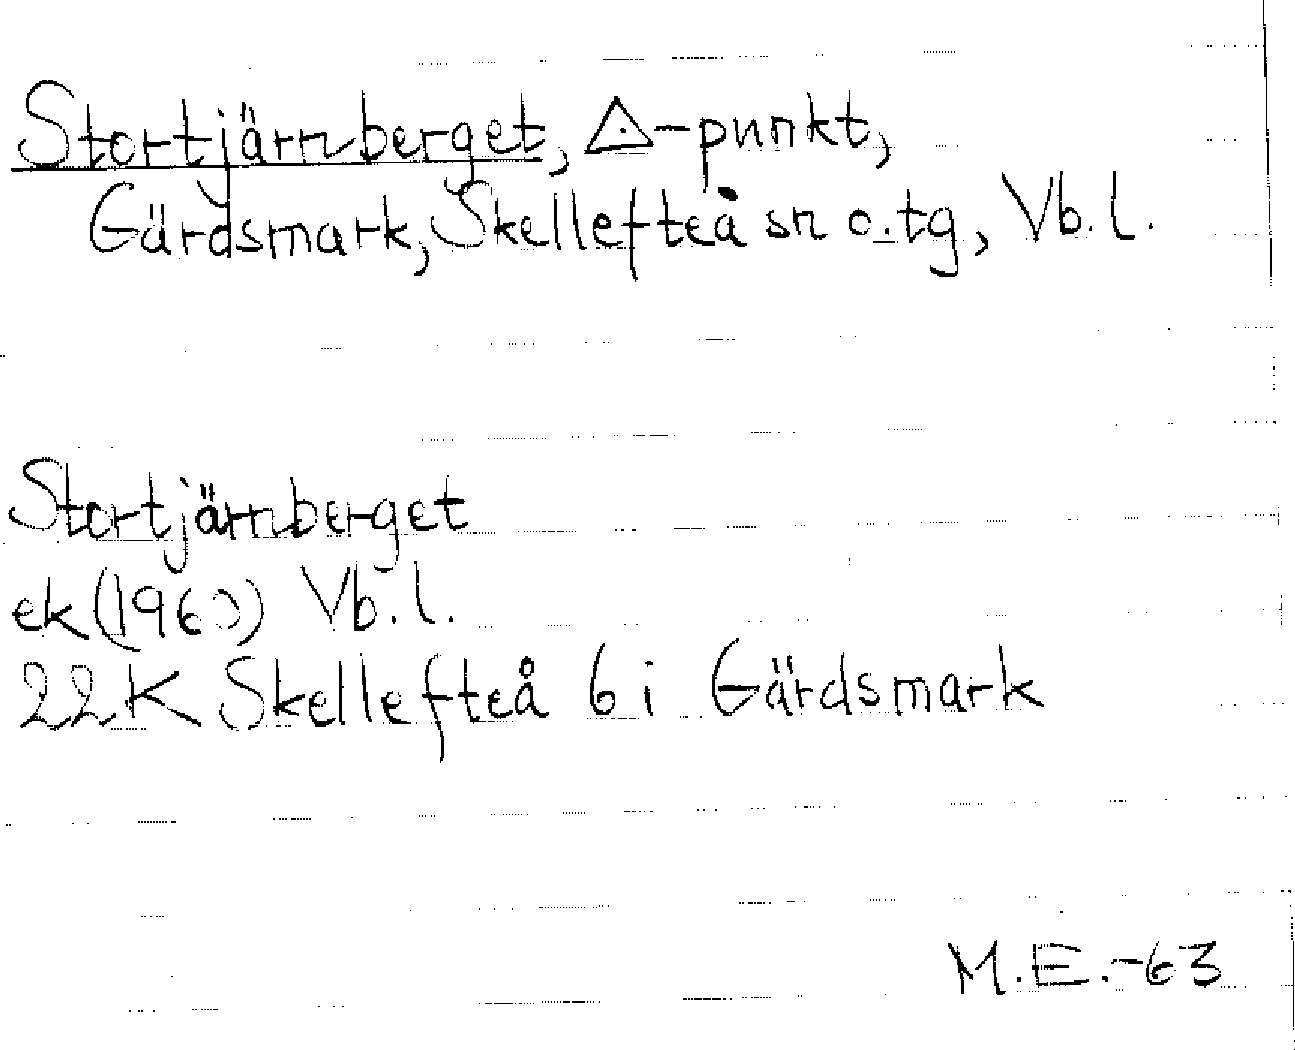 Stortjärnberget, △-punkt,
Gärdsmark, Skellefteå sn o. tg, Vb. l.
Stortjärnberget
ek (1960) Vb. l.
22 K Skellefteå 6 i Gärdsmark
M.E.-63